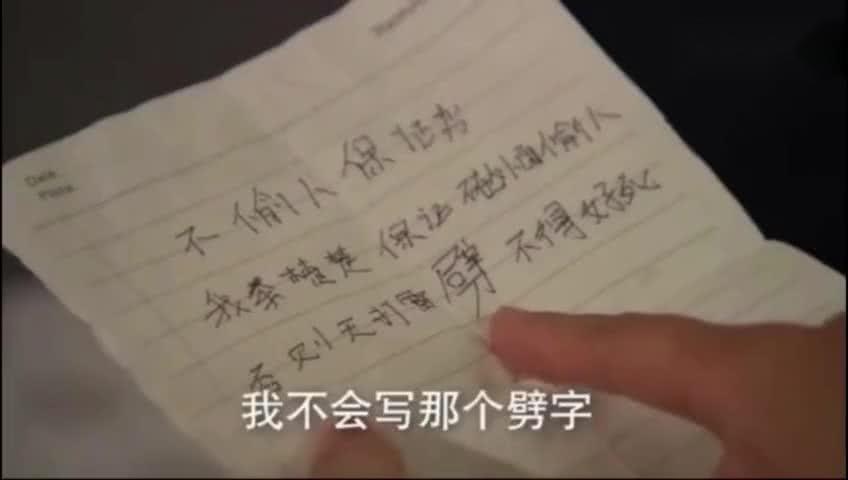 Date
不偷人保证书
我秦楚楚保证碰面偷人
否则天打雷劈不得好死
我不会写那个劈字